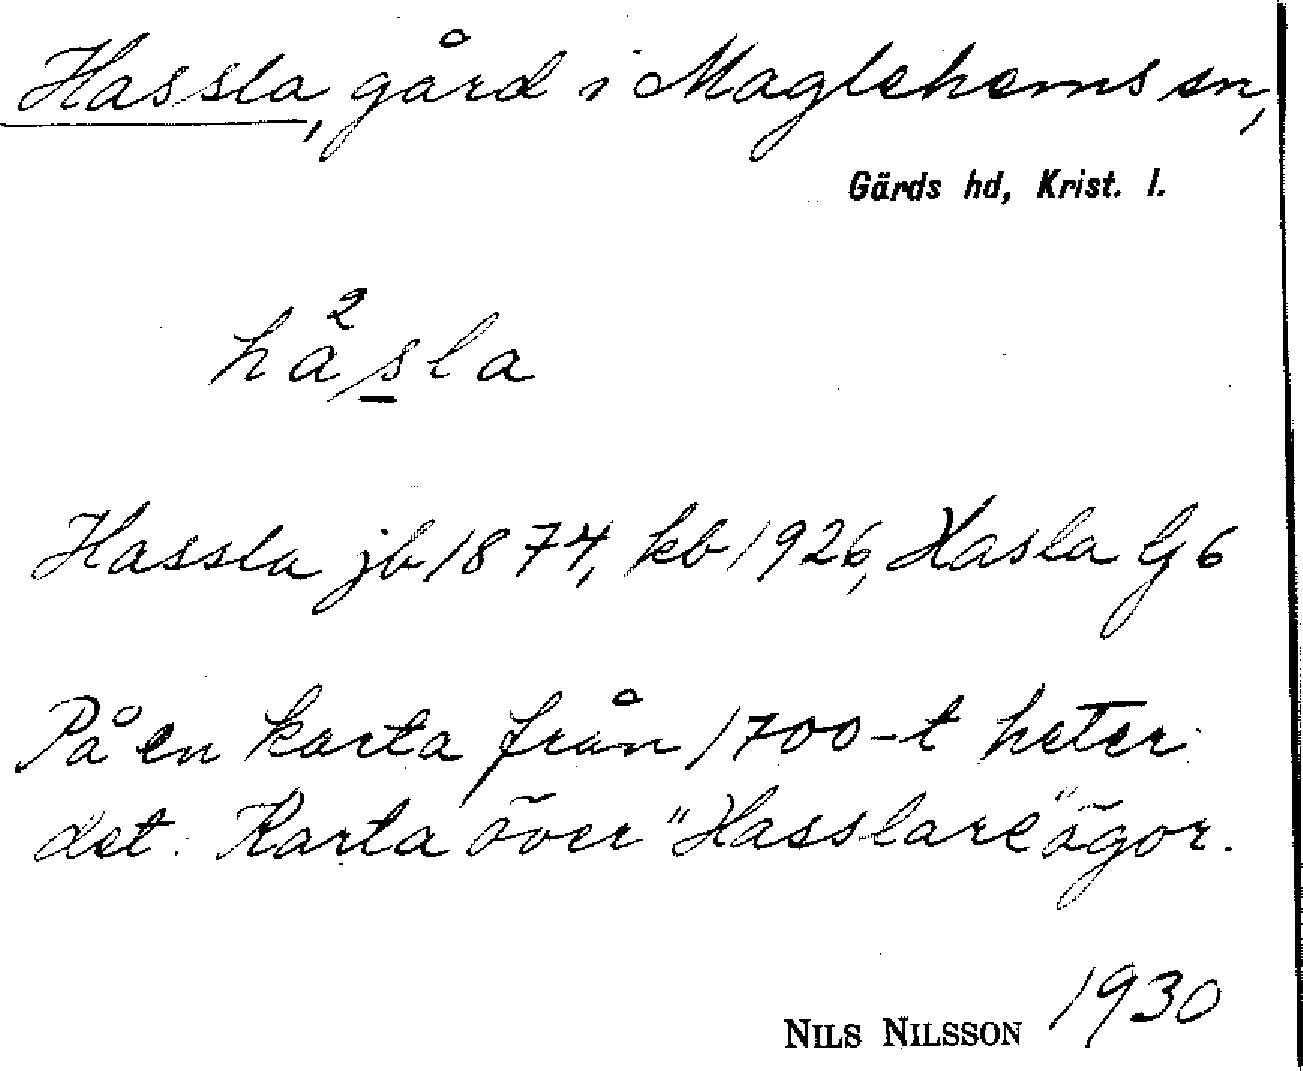 Hassla, gård i Maglehems sn,
Gärds hd, Krist. l.
håsla
Hassla jb 1874, kb 1926, Hasla G 6
På en karta från 1700-t heter
det: Karta över "Hasslare" ägor.
NILS NILSSON 1930